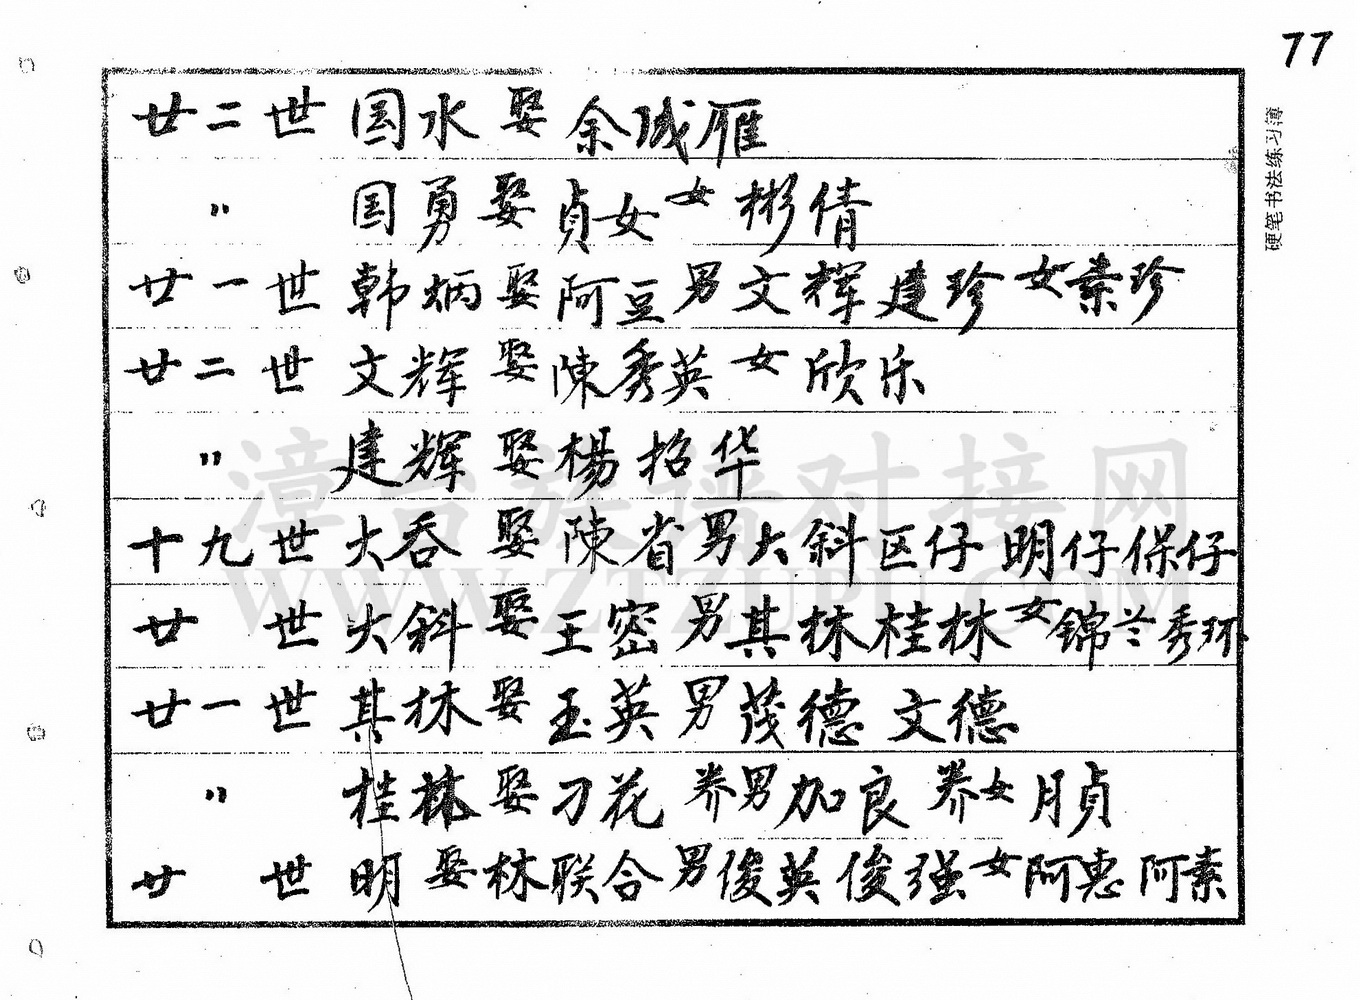 77
硬笔书法练习簿
廿二世 国水 娶 余成雁
〃 国勇 娶 贞女 女 彬倩
廿一世 韩炳 娶 阿豆 男 文辉 建珍 女 素珍
廿二世 文辉 娶 陳秀英 女 欣乐
〃 建辉 娶 楊招华
十九世 大吞 娶 陳省 男 大斜 区仔 明仔 保仔
廿世 大斜 娶 王密 男 其林 桂林 女 锦兰 秀环
廿一世 其林 娶 玉英 男 茂德 文德
〃 桂林 娶 刁花 养男 加良 养女 月贞
廿世 明 娶 林联合 男 俊英 俊强 女 阿惠 阿素
漳台族谱对接网
WWW.ZTZUPU.COM